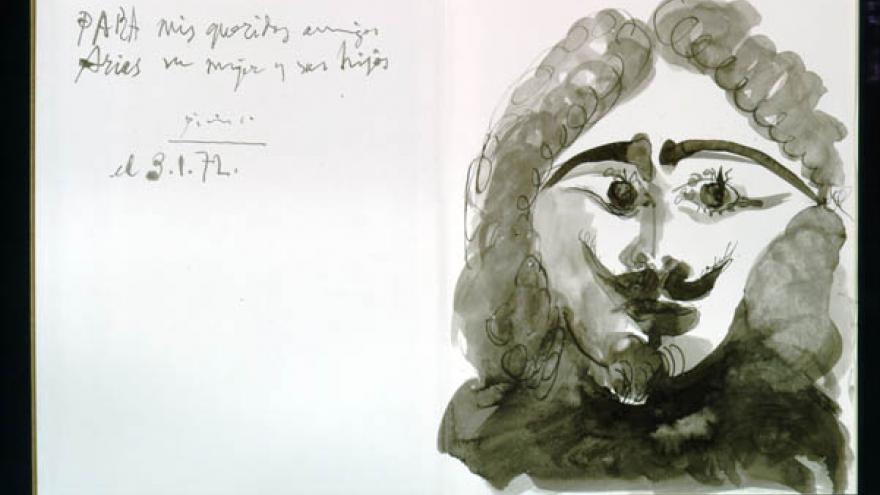 PARA mis queridos amigos
Arias su mujer y sus hijos
Picasso
el 3.1.72.